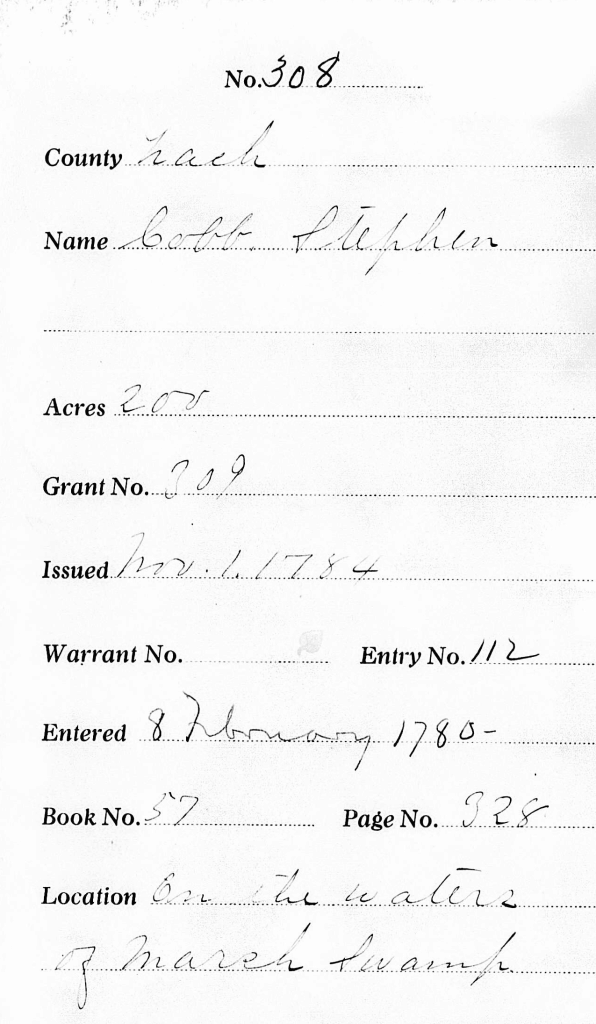 No. 308
County Nash
Name Cobb. Stephen
Acres 200
Grant No. 309
Issued Nov. 1. 1784
Warrant No. Entry No. 112
Entered 8 February 1780-
Book No. 57 Page No. 328
Location On the waters
of Marsh Swamp